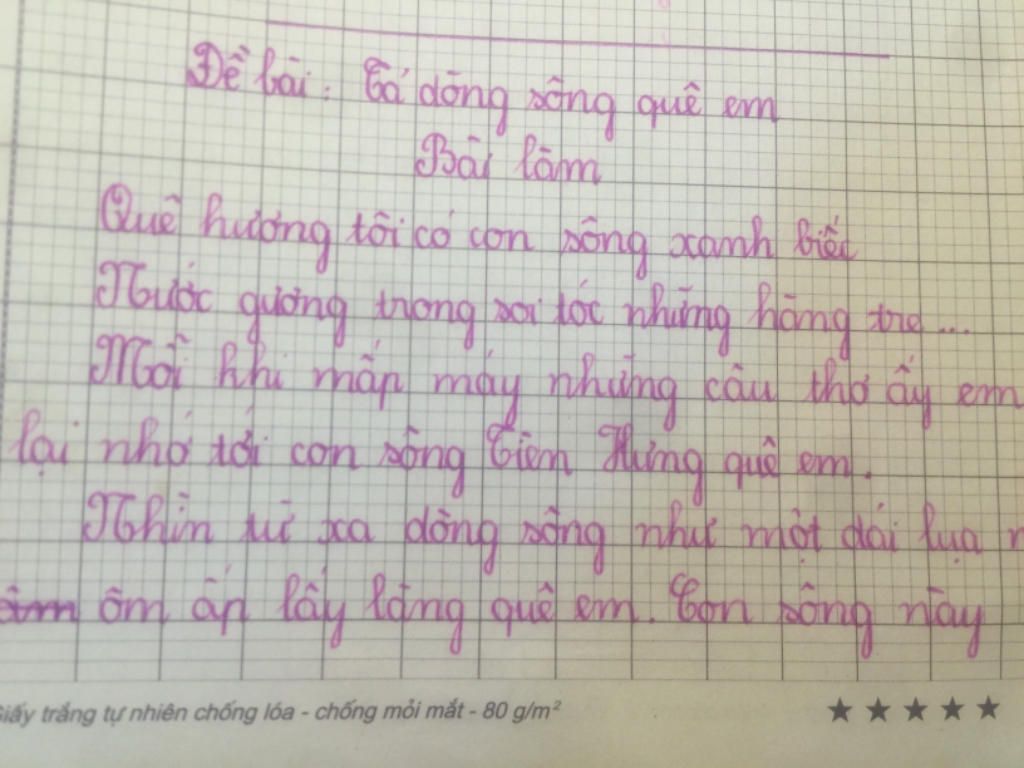 Đề bài: Tả dòng sông quê em
Bài làm
Quê hương tôi có con sông xanh biếc
Nước gương trong soi tóc những hàng tre...
Mỗi khi mấp máy những câu thơ ấy em
lại nhớ tới con sông Tiên Hưng quê em.
Nhìn từ xa dòng sông như một dải lụa
ôm ấp lấy làng quê em. Con sông này
Giấy trắng tự nhiên chống lóa - chống mỏi mắt - 80 g/m²